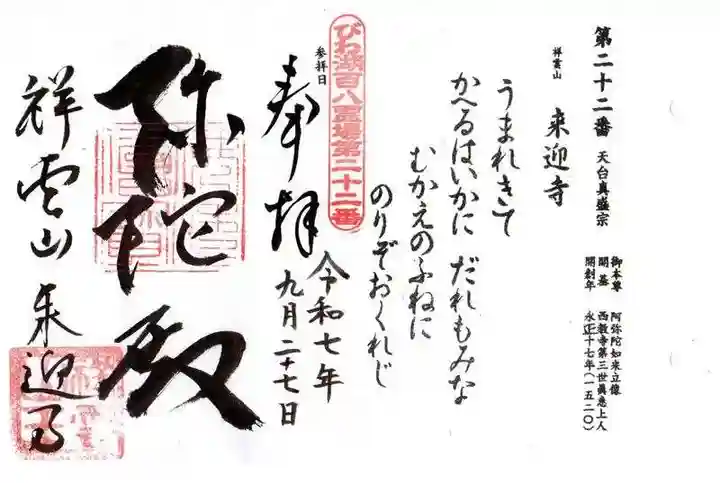 第二十二番 天台真盛宗
祥雲山 来迎寺
御本尊 阿弥陀如来立像
開基 西教寺第三世真恵上人
開創年 永正十七年(一五二〇)
うまれきて
かへるはいかに だれもみな
むかえのふねに
のりぞおくれじ
びわ湖百八霊場第二十二番
参拝日
奉拝
令和七年
九月二十七日
弥陀殿
祥雲山来迎寺